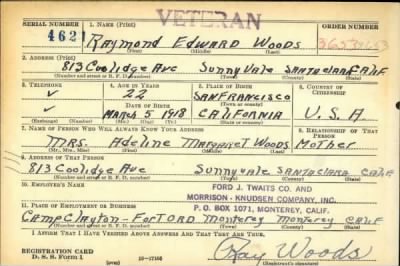 VETERAN
SERIAL NUMBER 1. NAME (Print) ORDER NUMBER
4621 RAYMOND EDWARD WOODS
(First) (Middle) (Last)
2. ADDRESS (Print)
813 Coolidge Ave SunnyVale SANTA CLARA CALIF
(Number and street or R. F. D. number) (Town) (County) (State)
3. TELEPHONE 4. AGE IN YEARS 5. PLACE OF BIRTH 6. COUNTRY OF CITIZENSHIP
22 SAN FRANCISCO
DATE OF BIRTH (Town or county)
MARCH 5 1918 CALIFORNIA U. S. A
(Exchange) (Number) (Mo.) (Day) (Yr.) (State or country)
7. NAME OF PERSON WHO WILL ALWAYS KNOW YOUR ADDRESS 8. RELATIONSHIP OF THAT PERSON
MRS. Adeline MARGARET WOODS Mother
(Mr., Mrs., Miss) (First) (Middle) (Last)
9. ADDRESS OF THAT PERSON
813 Coolidge Ave SunnyVale SANTA CLARA CALIF
(Number and street or R. F. D. number) (Town) (County) (State)
10. EMPLOYER'S NAME
FORD J. TWAITS CO. AND
MORRISON - KNUDSEN COMPANY, INC.
P. O. BOX 1071, MONTEREY, CALIF.
11. PLACE OF EMPLOYMENT OR BUSINESS
CAMP CLAYTON - FORT ORD Monterey Monterey CALIF
(Number and street or R. F. D. number) (Town) (County) (State)
I AFFIRM THAT I HAVE VERIFIED ABOVE ANSWERS AND THAT THEY ARE TRUE.
REGISTRATION CARD
D. S. S. FORM 1 (over) 16-17105
Ray Woods